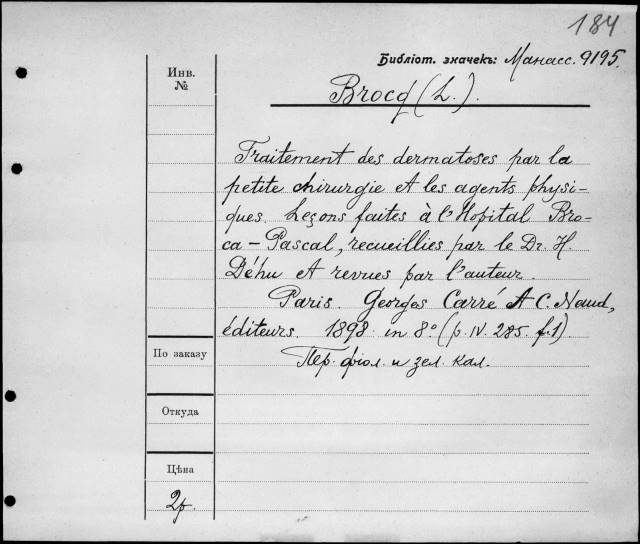 184
Библіот. значекъ: Манасс. 9195.
Инв.
№
Brocq (L.).
Traitement des dermatoses par la
petite chirurgie et les agents physi-
ques. Leçons faites à l'Hopital Bro-
ca-Pascal, recueillies par le Dr. H.
Déhu et revues par l'auteur.
Paris. Georges Carré et C. Naud,
éditeurs. 1898 in 8º (p. IV. 285. f.1).
По заказу
Пер. фіол. и зел. кал.
Откуда
Цѣна
2р.